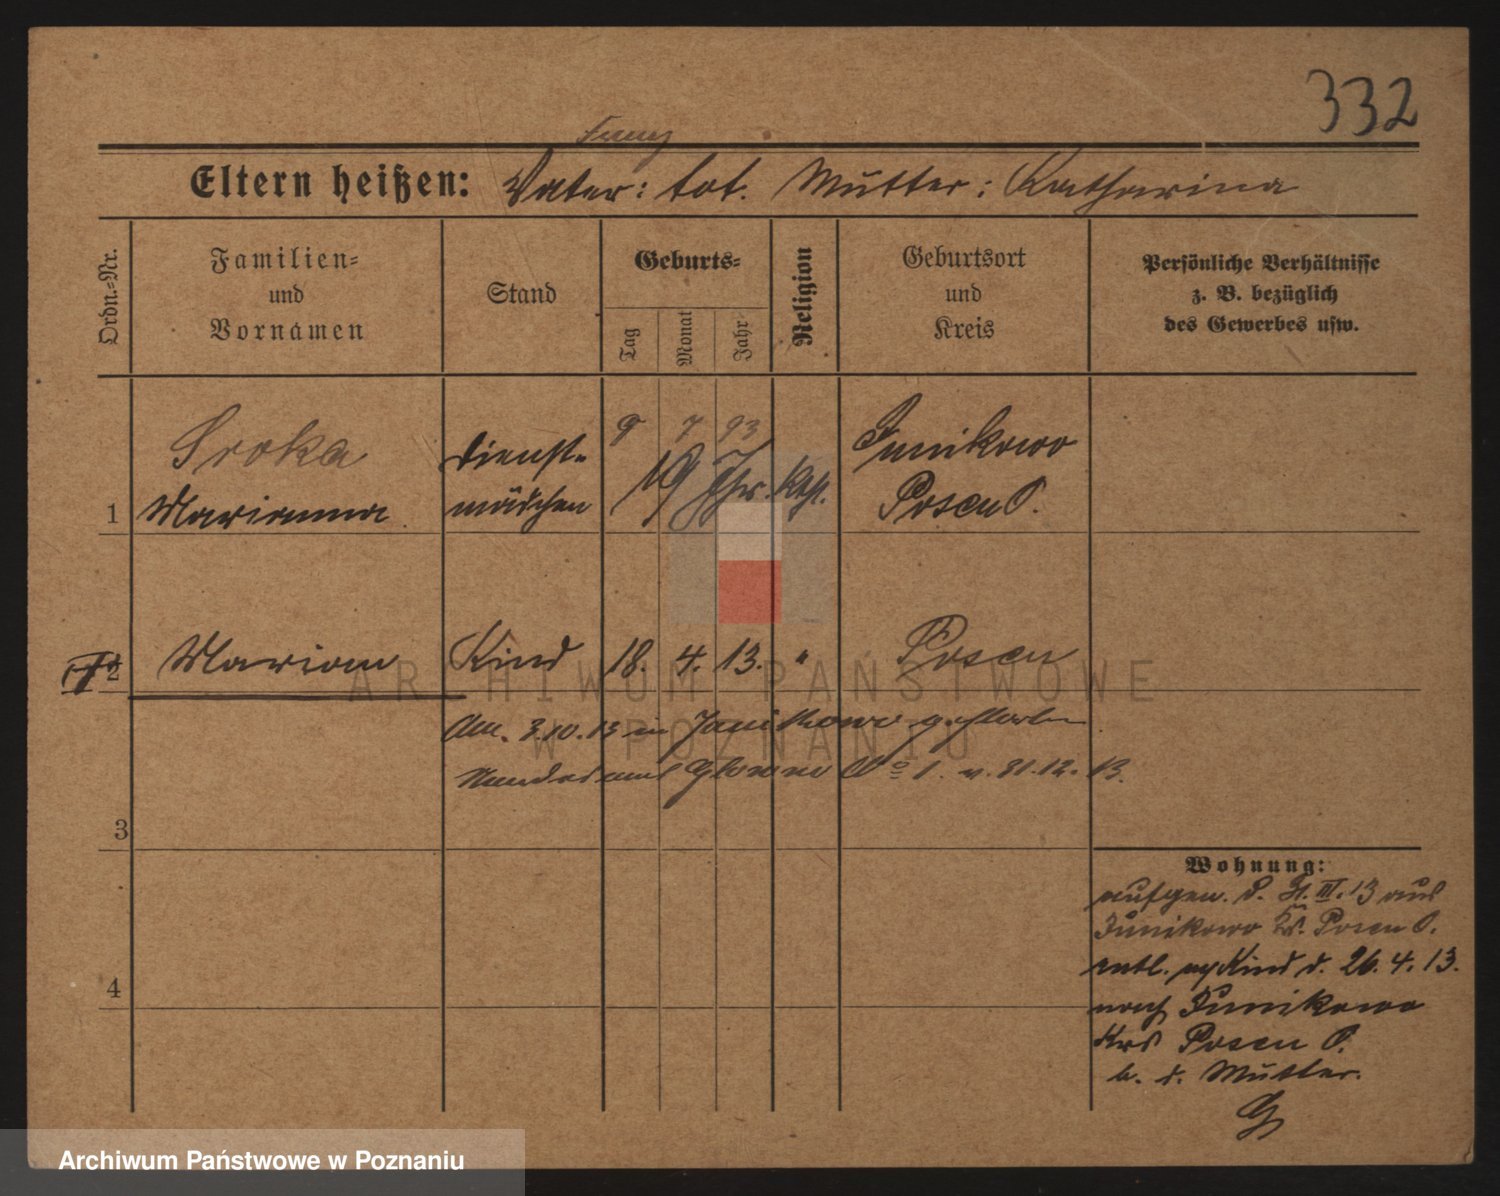 332
Franz
Eltern heißen: Vater: tot. Mutter: Katharina
Ordn.-Nr.
Familien-
und
Vornamen
Stand
Geburts-
Tag
Monat
Jahr
Religion
Geburtsort
und
Kreis
Persönliche Verhältnisse
z. B. bezüglich
des Gewerbes usw.
1
Sroka
Marianna
Dienst-
mädchen
9 7 93
19 Jhr.
kth.
Junikowo
Posen O.
2
Marian
Kind
18. 4. 13.
"
Posen
Am 3.10.13 in Junikowo gestorben
Standesamt No 1. v. 31.12.13.
3
4
Wohnung:
aufgen. d. III.13 aus
Junikowo Kr. Posen O.
entl. Kind d. 26.4.13.
nach Junikowo
Krs Posen O.
b. d. Mutter.
ARCHIWUM PAŃSTWOWE
W POZNANIU
Archiwum Państwowe w Poznaniu